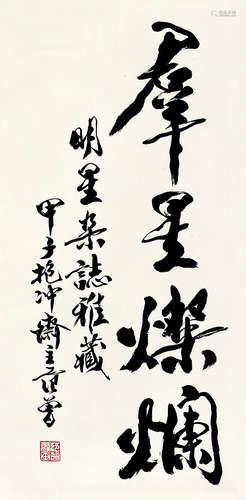 羣星燦爛
明星杂誌雅藏
甲子抱冲齋主范曾